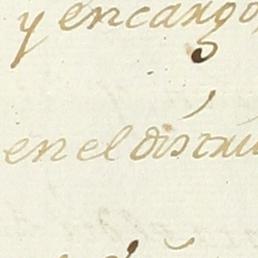 y encargo
en el distri